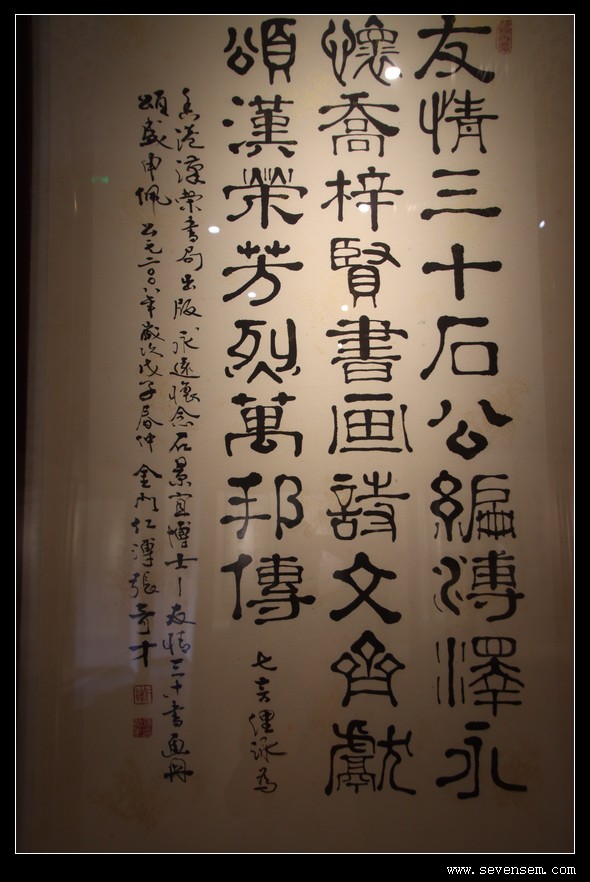 友情三十石公編溥澤永
懷喬梓賢書画詩文齊獻
頌漢榮芳烈萬邦傳 七言俚詠為
香港漢榮書局出版永遠懷念石景宜博士—友情三十書画冊
頌盛申佩 公元二〇〇八年歲次戊子春仲 金門仁溥張奇才
www.sevensem.com